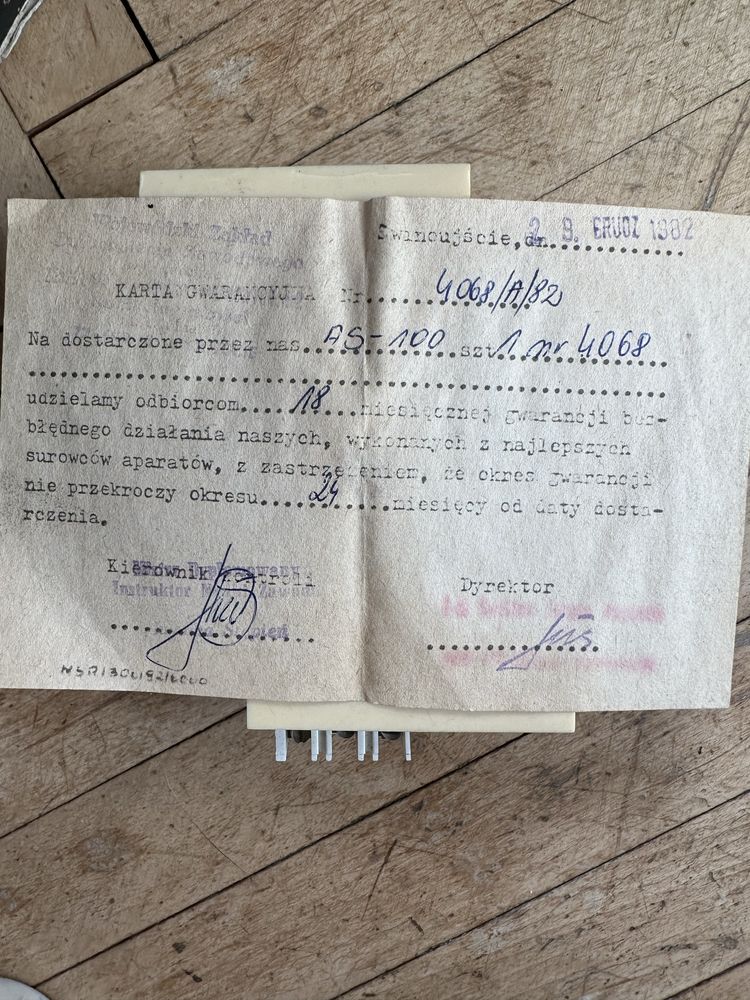 Zakład
Świnoujście, dn. 29. GRUDZ 1982
KARTA GWARANCYJNA Nr 4068/A/82
Na dostarczone przez nas AS-100 szt 1 nr 4068
udzielamy odbiorcom 18 miesięcznej gwarancji bez-
błędnego działania naszych, wykonanych z najlepszych
surowców aparatów, z zastrzeżeniem, że okres gwarancji
nie przekroczy okresu 24 miesięcy od daty dosta-
rczenia.
Kierownik Kontroli
Instruktor
Dyrektor